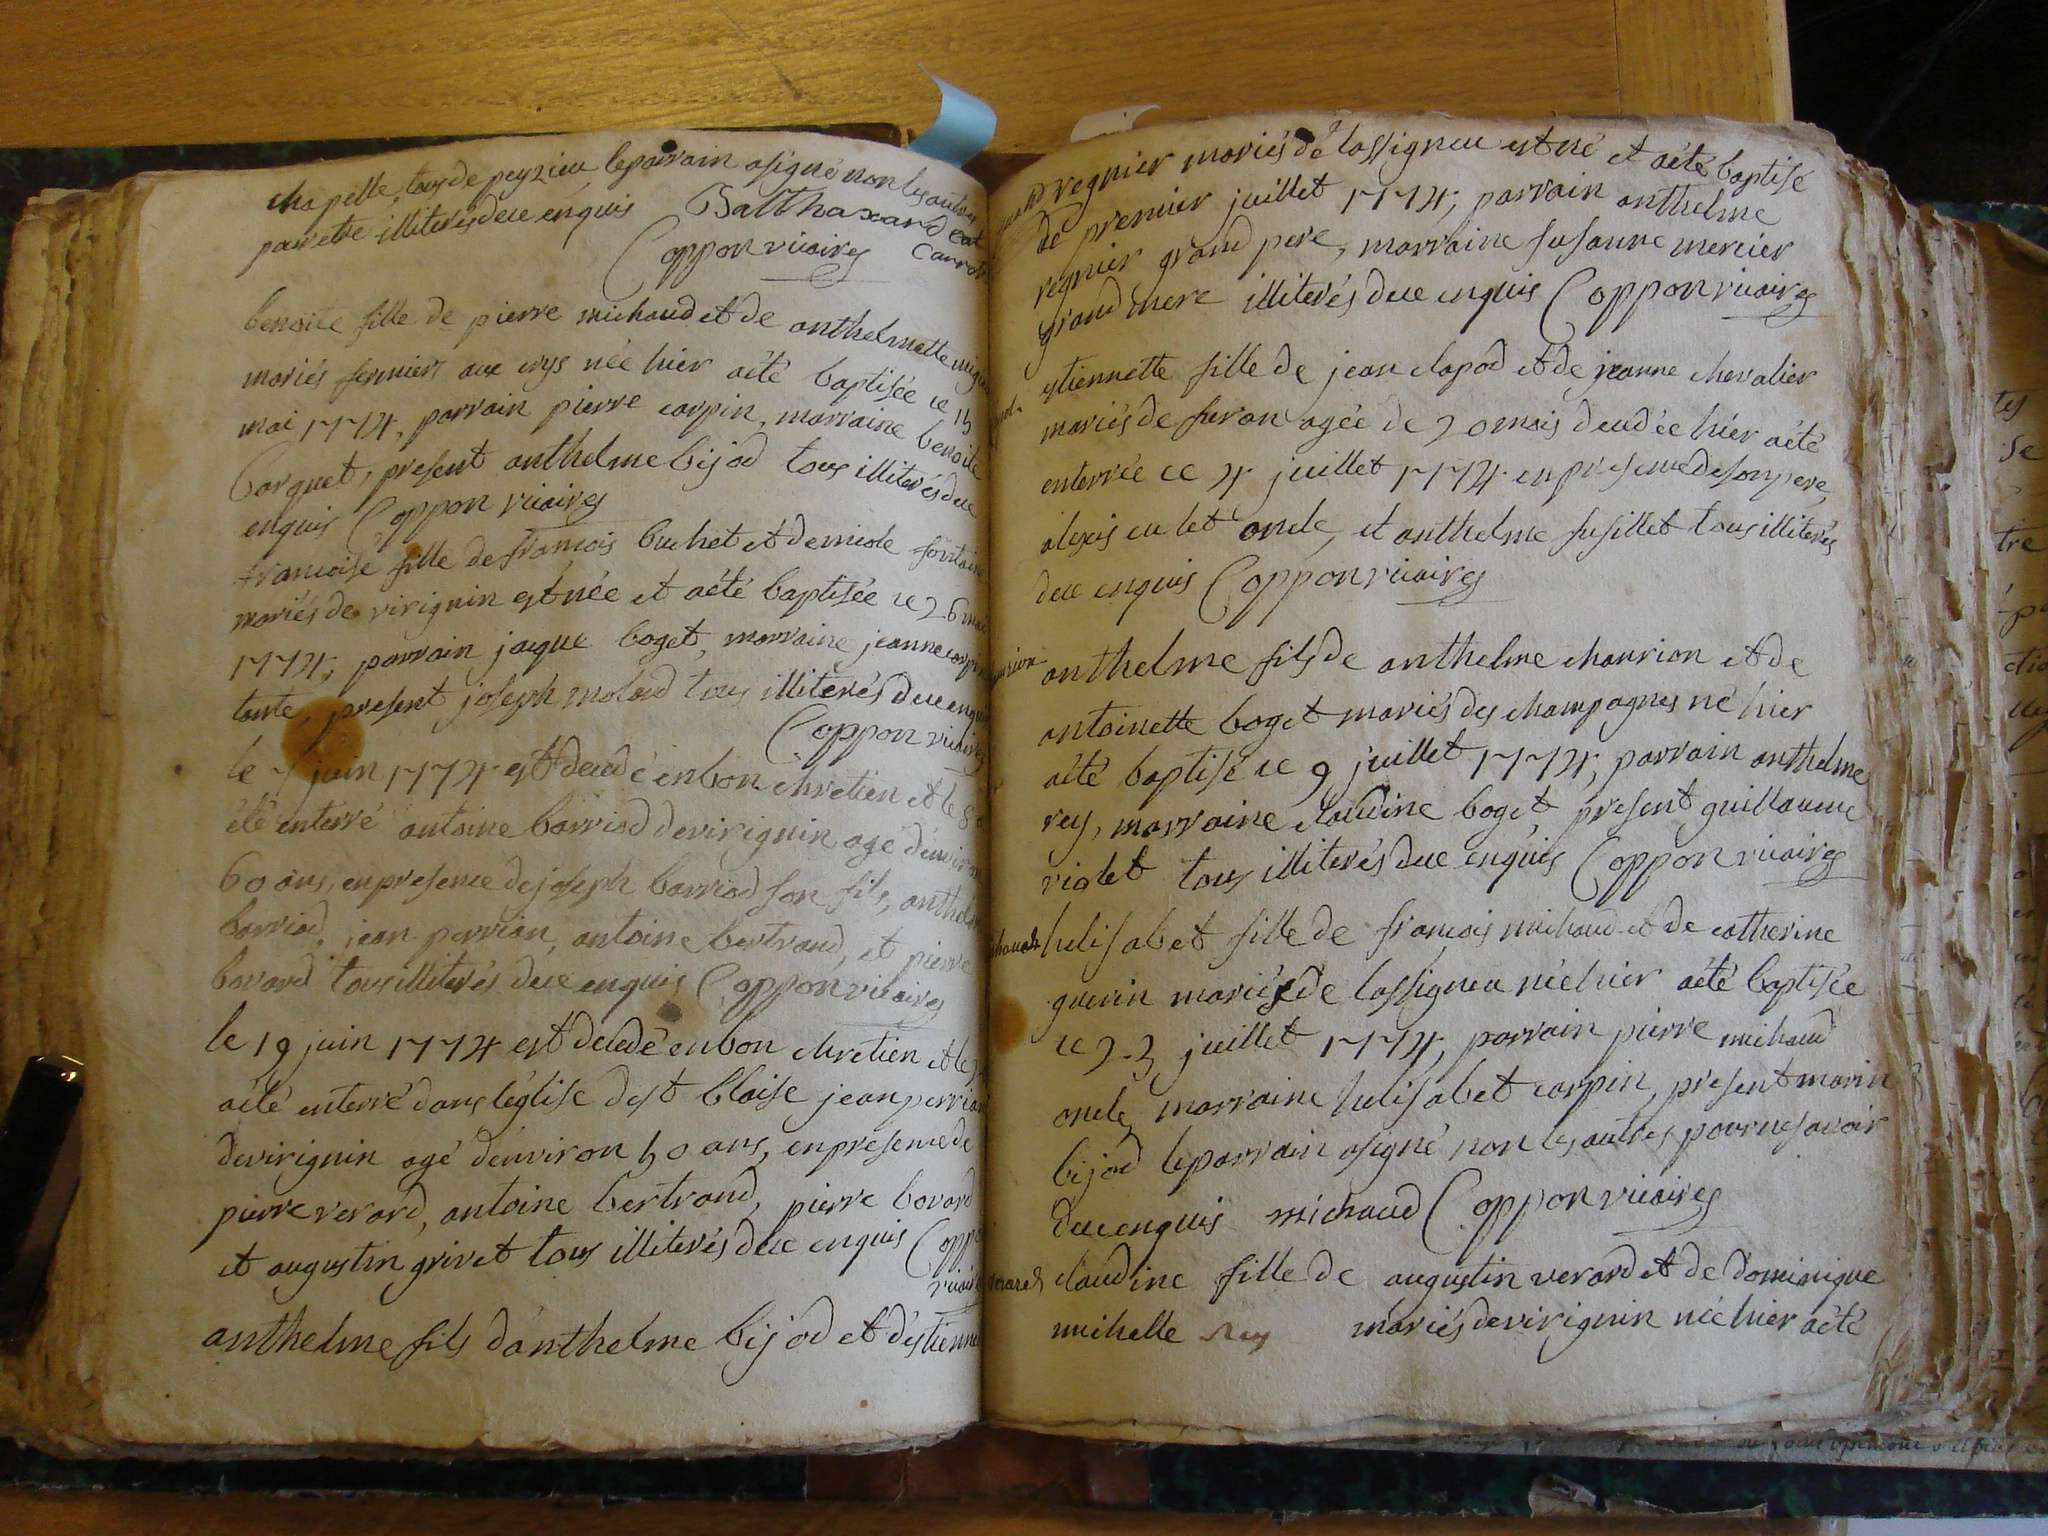 chapelle, tous de peyzieu le parrain a signé non les autres
pour etre illiterés deue enquis Balthaxard
Coppon vicaires
benoite fille de pierre michaud et de anthelmette
mariés fermiers aux erys née hier a été baptisée ce 15
mai 1774, parrain pierre carpin, marraine benoite
borquet, present anthelme bijod tous illiterés deue
enquis Coppon vicaires
francoise fille de francois buchet et de micole fontaine
mariés de virignin est née et a été baptisée ce 26 mai
1774, parrain jacque boget, marraine jeanne carpin
tante, present joseph molard tous illiterés deue enquis
Coppon vicaires
le 7 juin 1774 est decedé en bon chretien et le 8 a
été enterré antoine barriod de virignin agé d'environ
60 ans, en presence de joseph barriod son fils, anthelme
barriod, jean perrian, antoine bertrand, et pierre
bavard tous illiterés deue enquis Coppon vicaires
le 19 juin 1774 est decedé en bon chretien et le
a été enterré dans l'église de st blaise jean perrian
de virignin agé d'environ 50 ans, en presence de
pierre verard, antoine bertrand, pierre bavard
et augustin grivet tous illiterés deue enquis Coppon
vicaires
anthelme fils d'anthelme bijod et d'estienne
regnier mariés de lassigneu est né et a été baptisé
ce premier juillet 1774, parrain anthelme
regnier grand pere, marraine susanne mercier
grand mere illiterés deue enquis Coppon vicaires
estiennette fille de jean clapod et de jeanne chevalier
mariés de furan agée de 20 mois decedée hier a été
enterrée ce 4 juillet 1774 en presence de son pere,
alexis culet oncle, et anthelme fusillet tous illiterés
deue enquis Coppon vicaires
anthelme fils de anthelme chaurion et de
antoinette boget mariés des champagnes né hier
a été baptisé ce 9 juillet 1774, parrain anthelme
rey, marraine claudine boget present guillaume
violet tous illiterés deue enquis Coppon vicaires
michaud helisabet fille de francois michaud et de catherine
guerin mariés de lassigneu née hier a été baptisée
ce 23 juillet 1774, parrain pierre michaud
oncle, marraine helisabet carpin, present marin
bijod le parrain a signé non les autres pour ne savoir
deue enquis michaud Coppon vicaires
verard claudine fille de augustin verard et de dominique
michelle Rey mariés de virignin née hier a été